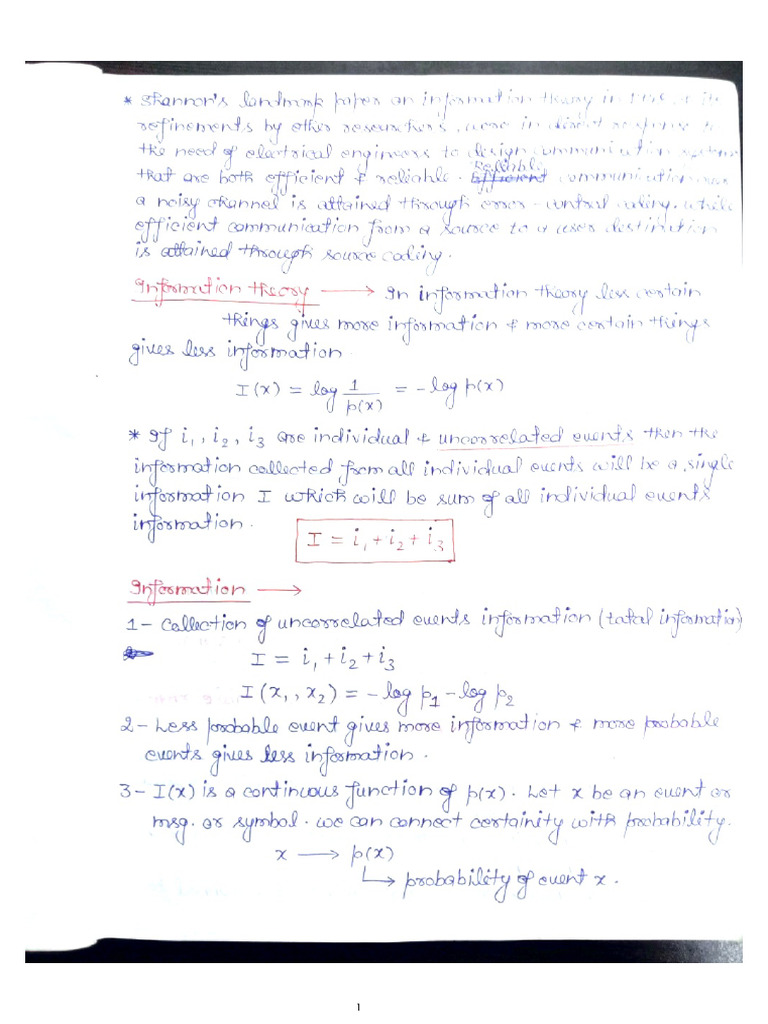 * Shannon's landmark paper on information theory in 1948 & its
refinements by other researchers, were in direct response to
the need of electrical engineers to design communication systems
that are both efficient & reliable. Reliable communication over
a noisy channel is attained through error-control coding, while
efficient communication from a source to a user destination
is attained through source coding.
Information theory ⟶ In information theory less certain
things gives more information & more certain things
gives less information.
I(x) = log 1/p(x) = -log p(x)
* If i₁, i₂, i₃ are individual & uncorrelated events then the
information collected from all individual events will be a single
information I which will be sum of all individual events
information.
I = i₁ + i₂ + i₃
Information ⟶
1- Collection of uncorrelated events information (total information)
I = i₁ + i₂ + i₃
I(x₁, x₂) = -log p₁ - log p₂
2- Less probable event gives more information & more probable
events gives less information.
3- I(x) is a continuous function of p(x). Let x be an event or
msg. or symbol. we can connect certainity with probability.
x ⟶ p(x)
↳ probability of event x.
1